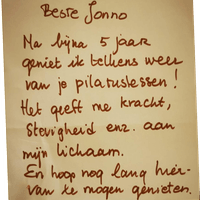 Beste Jonno
Na bijna 5 jaar
geniet ik telkens weer
van je pilatuslessen!
Het geeft me kracht,
stevigheid enz. aan
mijn lichaam.
En hoop nog lang hier-
van te mogen genieten.